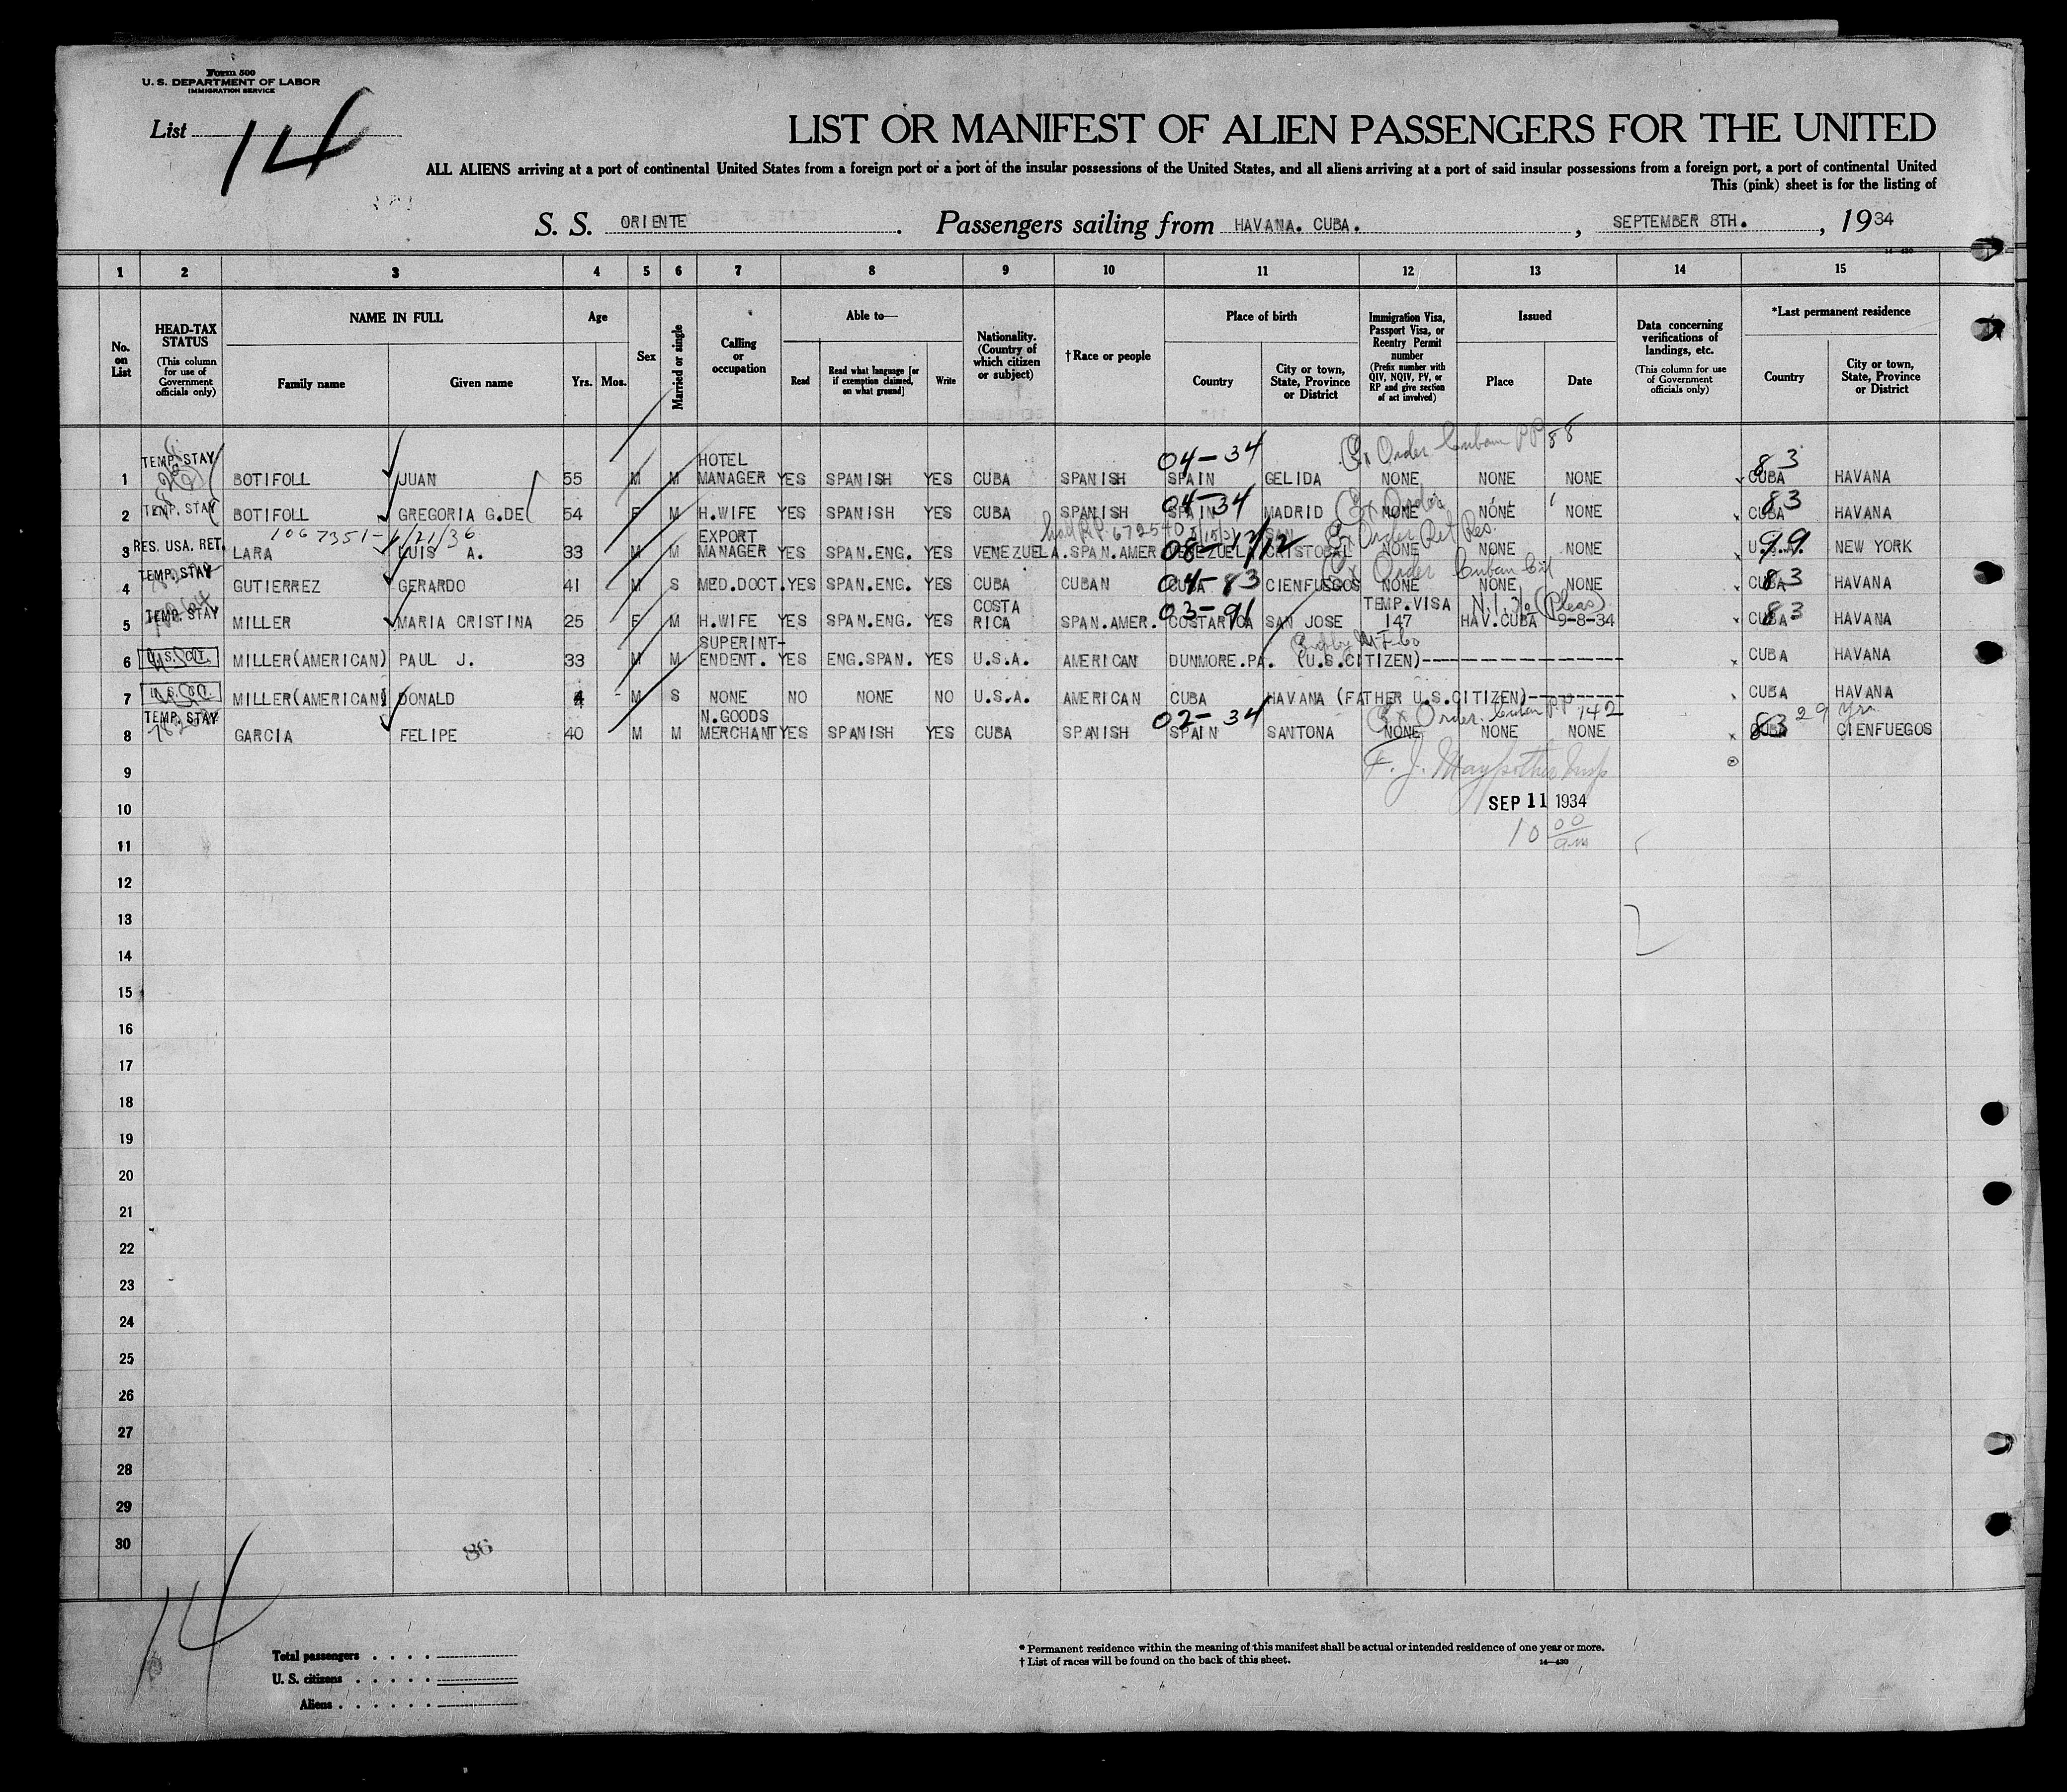 Form 500
U. S. DEPARTMENT OF LABOR
IMMIGRATION SERVICE
List 14
LIST OR MANIFEST OF ALIEN PASSENGERS FOR THE UNITED
ALL ALIENS arriving at a port of continental United States from a foreign port or a port of the insular possessions of the United States, and all aliens arriving at a port of said insular possessions from a foreign port, a port of continental United
This (pink) sheet is for the listing of
S. S. ORIENTE. Passengers sailing from HAVANA. CUBA., SEPTEMBER 8TH., 1934
14-430
1 2 3 4 5 6 7 8 9 10 11 12 13 14 15
No. on List
HEAD-TAX STATUS (This column for use of Government officials only)
NAME IN FULL Family name Given name
Age Yrs. Mos.
Sex
Married or single
Calling or occupation
Able to— Read Read what language [or if exemption claimed, on what ground] Write
Nationality. (Country of which citizen or subject)
†Race or people
Place of birth Country City or town, State, Province or District
Immigration Visa, Passport Visa, or Reentry Permit number (Prefix number with QIV, NQIV, PV, or RP and give section of act involved)
Issued Place Date
Data concerning verifications of landings, etc. (This column for use of Government officials only)
*Last permanent residence Country City or town, State, Province or District
04-34 Ex Order Cuban PP 88 83
1 TEMP. STAY BOTIFOLL JUAN 55 M M HOTEL MANAGER YES SPANISH YES CUBA SPANISH SPAIN GELIDA NONE NONE NONE CUBA HAVANA
04-34 Ex Order 83
2 TEMP. STAY BOTIFOLL GREGORIA G.DE 54 F M H.WIFE YES SPANISH YES CUBA SPANISH SPAIN MADRID NONE NONE NONE CUBA HAVANA
1067351-6/21/36 672540 08-17/12 Ex Order Ret Res. 99
3 RES. USA. RET. LARA LUIS A. 33 M M EXPORT MANAGER YES SPAN.ENG. YES VENEZUELA. SPAN.AMER VENEZUELA SAN CRISTOBAL NONE NONE NONE U.S.A. NEW YORK
04-83 Ex Order Cuban Cit 83
4 TEMP. STAY GUTIERREZ GERARDO 41 M S MED.DOCT. YES SPAN.ENG. YES CUBA CUBAN CUBA CIENFUEGOS NONE NONE NONE CUBA HAVANA
03-91 N.I. 3/2 (Pleas) 83
5 TEMP. STAY MILLER MARIA CRISTINA 25 F M H.WIFE YES SPAN.ENG. YES COSTA RICA SPAN.AMER. COSTARICA SAN JOSE TEMP.VISA 147 HAV.CUBA 9-8-34 CUBA HAVANA
6 U.S. CIT. MILLER(AMERICAN) PAUL J. 33 M M SUPERINT-ENDENT. YES ENG.SPAN. YES U.S.A. AMERICAN DUNMORE.PA. (U.S.CITIZEN)--------------------- CUBA HAVANA
7 U.S. CIT. MILLER(AMERICAN) DONALD 4 - M S NONE NO NONE NO U.S.A. AMERICAN CUBA HAVANA (FATHER U.S.CITIZEN)---------- CUBA HAVANA
02-34 Ex Order. Cuban PP 742 83 29 yrs.
8 TEMP. STAY GARCIA FELIPE 40 M M N.GOODS MERCHANT YES SPANISH YES CUBA SPANISH SPAIN SANTONA NONE NONE NONE CUBA CIENFUEGOS
9
10 SEP 11 1934
11 10 00 am
12
13
14
15
16
17
18
19
20
21
22
23
24
25
26
27
28
29
30
86
14
Total passengers
U. S. citizens
Aliens
* Permanent residence within the meaning of this manifest shall be actual or intended residence of one year or more.
† List of races will be found on the back of this sheet.
14-430